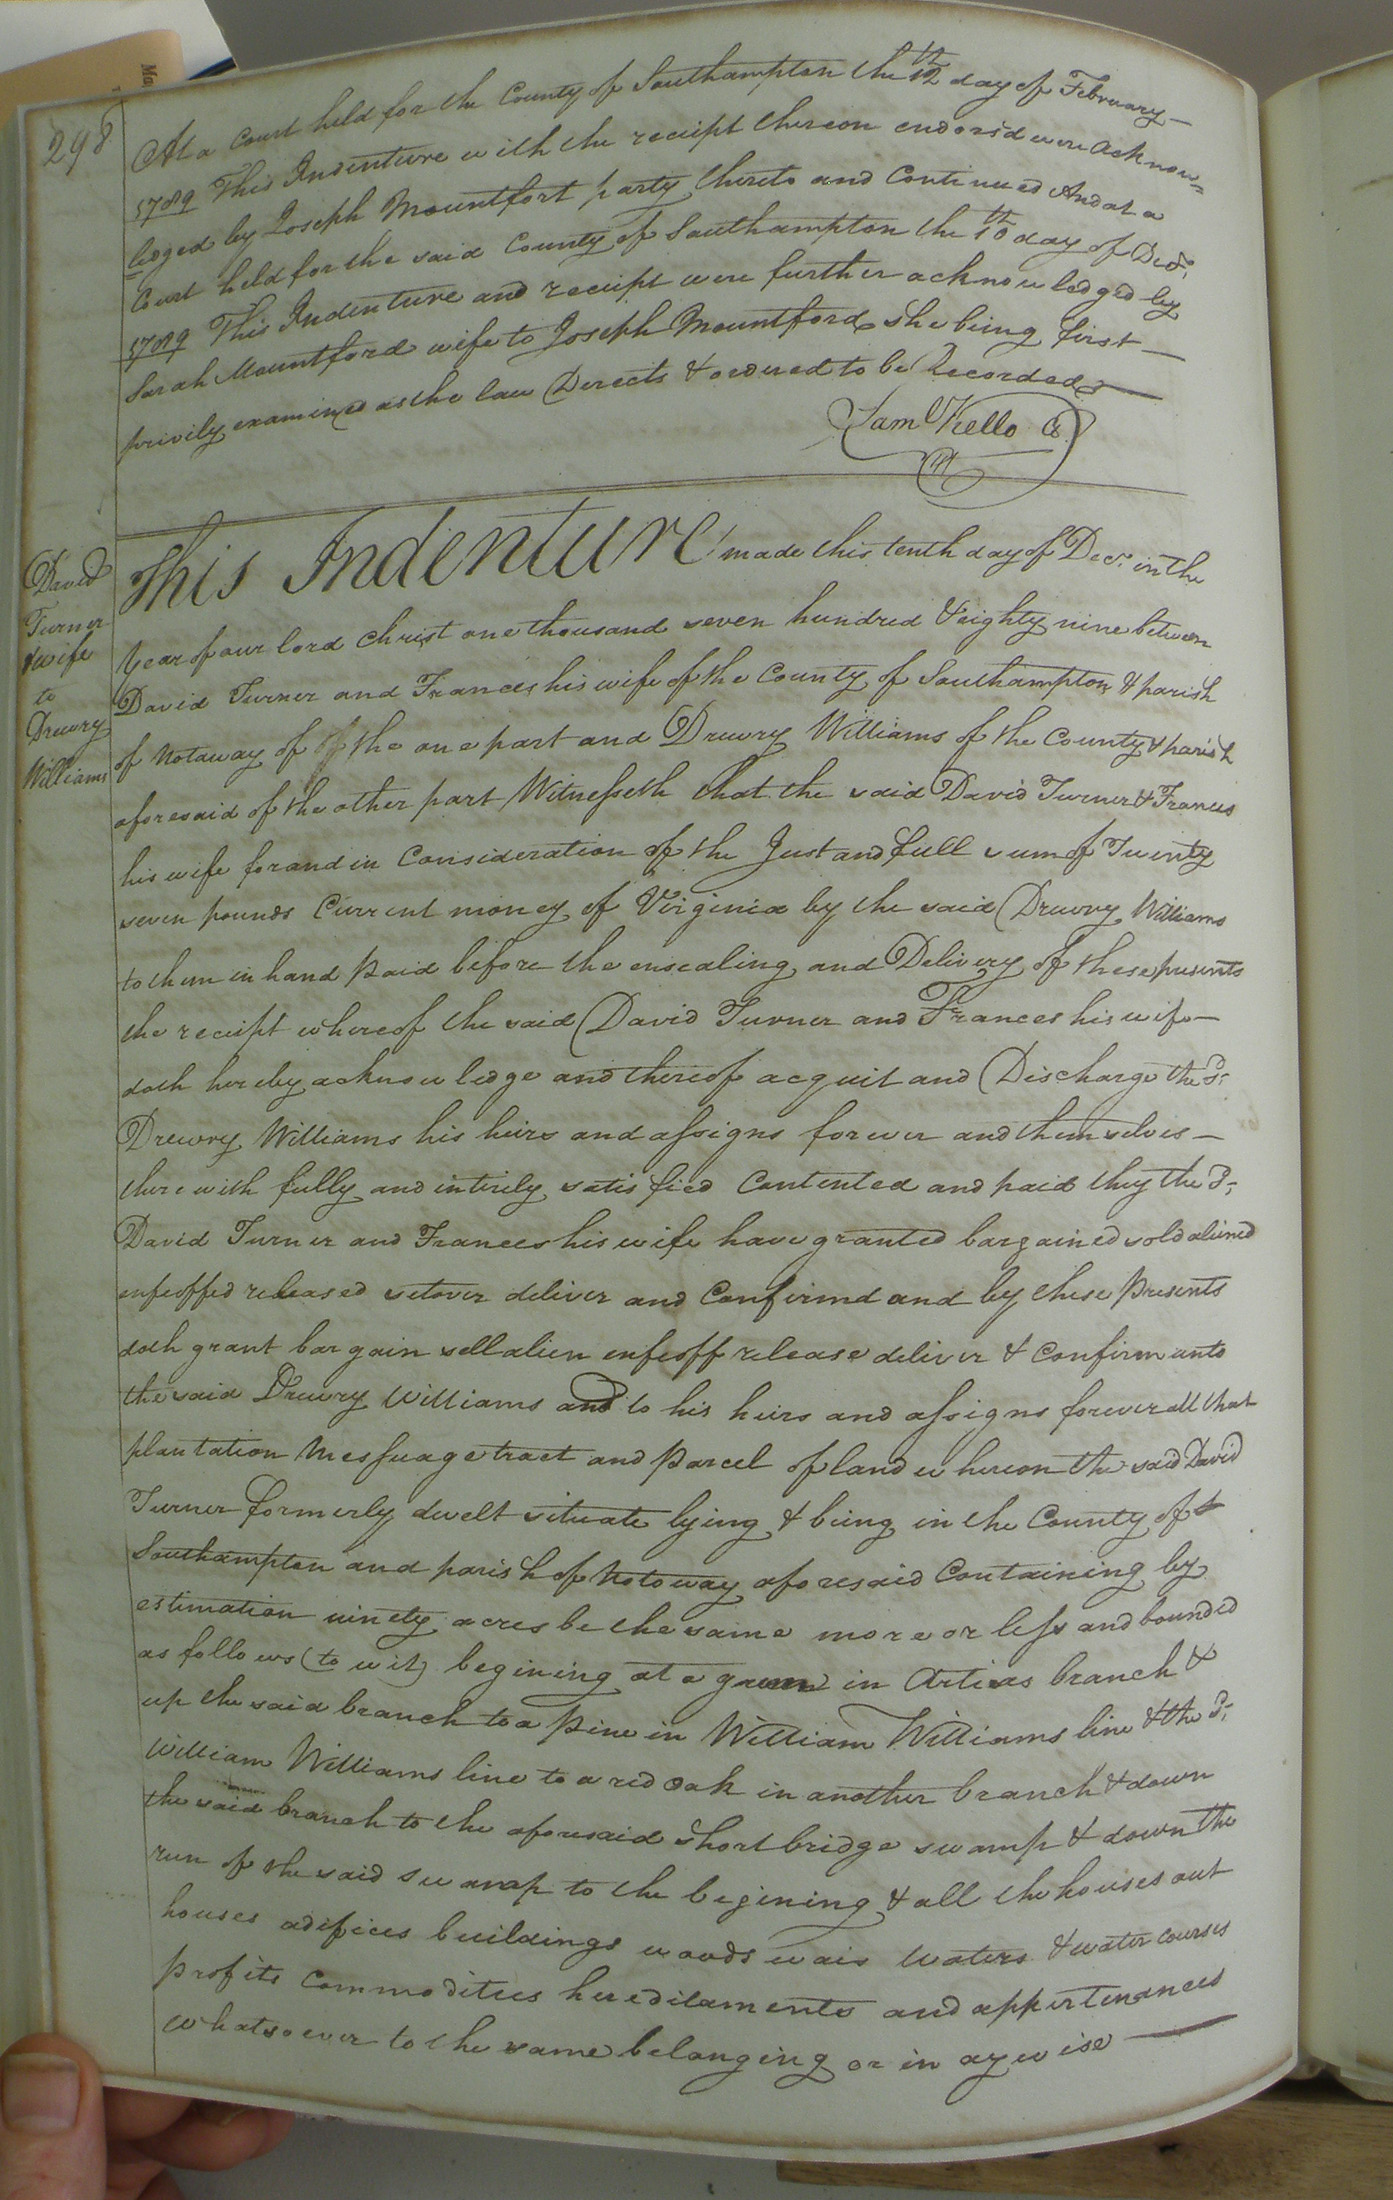 298
At a Court held for the County of Southampton the 12th day of February
1789 This Indenture with the receipt thereon endorsd were Acknow=
ledged by Joseph Mountfort party thereto and Continued And at a
Court held for the said County of Southampton the 10th day of Decr.
1789 This Indenture and receipt were further acknowledged by
Sarah Mountford wife to Joseph Mountford she being first
privily examined as the law Directs & ordered to be Recorded
Saml Kello Cl
This Indenture made this tenth day of Decr. in the
David Turner & wife to Drewry Williams
Year of our lord Christ one thousand seven hundred & eighty nine between
David Turner and Frances his wife of the County of Southampton & parish
of Notaway of of the one part and Drewry Williams of the County & parish
aforesaid of the other part Witnesseth that the said David Turner & Frances
his wife for and in Consideration of the Just and full sum of Twenty
seven pounds Current money of Virginia by the said Drewry Williams
to them in hand paid before the ensealing and Delivery of these presents
the receipt whereof the said David Turner and Frances his wife
doth hereby acknowledge and thereof acquit and Discharge the sd.
Drewry Williams his heirs and assigns forever and themselves
therewith fully and intirely satisfied Contented and paid they the sd.
David Turner and Frances his wife have granted bargained sold aliened
enfeoffed released setover deliver and Confirmd and by these Presents
doth grant bargain sell alien enfeoff release deliver & Confirm unto
the said Drewry Williams and to his heirs and assigns forever all that
plantation Messuage tract and Parcel of land whereon the said David
Turner formerly dwelt situate lying & being in the County of
Southampton and parish of Notoway aforesaid Containing by
estimation ninety acres be the same more or less and bounded
as follows (to wit) begining at a gum in Artises branch &
up the said branch to a pine in William Williams line & the sd.
William Williams line to a red Oak in another branch & down
the said branch to the aforesaid Short bridge swamp & down the
run of the said swamp to the begining & all the houses out
houses adifices buildings woods wais waters & water courses
profits Commodities hereditaments and appertenances
whatsoever to the same belonging or in ay wise